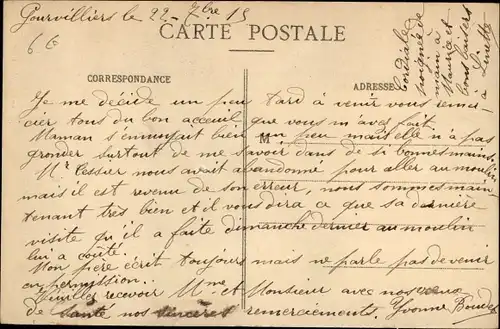 Gourvilliers le 22-7bre 15
66
CARTE POSTALE
CORRESPONDANCE
ADRESSE
Cordiale
poignée de
main à
Maurice et
bons baisers
à Linette
Je me décide un peu tard à venir vous remer
cier tous du bon acceuil que vous m'avez fait.
Maman s'ennuyait bien un peu mais elle n'a pas
M
gronder surtout de me savoir dans de si bonnes mains.
Mr Cessier nous avait abandonné pour aller au moulin
mais il est revenu de son erreur, nous sommes main
tenant très bien et il vous dira ce que sa dernière
visite qu'il a faite dimanche dernier au moulin
lui a coûté.
Mon père écrit toujours mais ne parle pas de venir
en permission.
Veuillez recevoir Mme et Monsieur avec nos vœux
de santé nos sincères remerciements. Yvonne